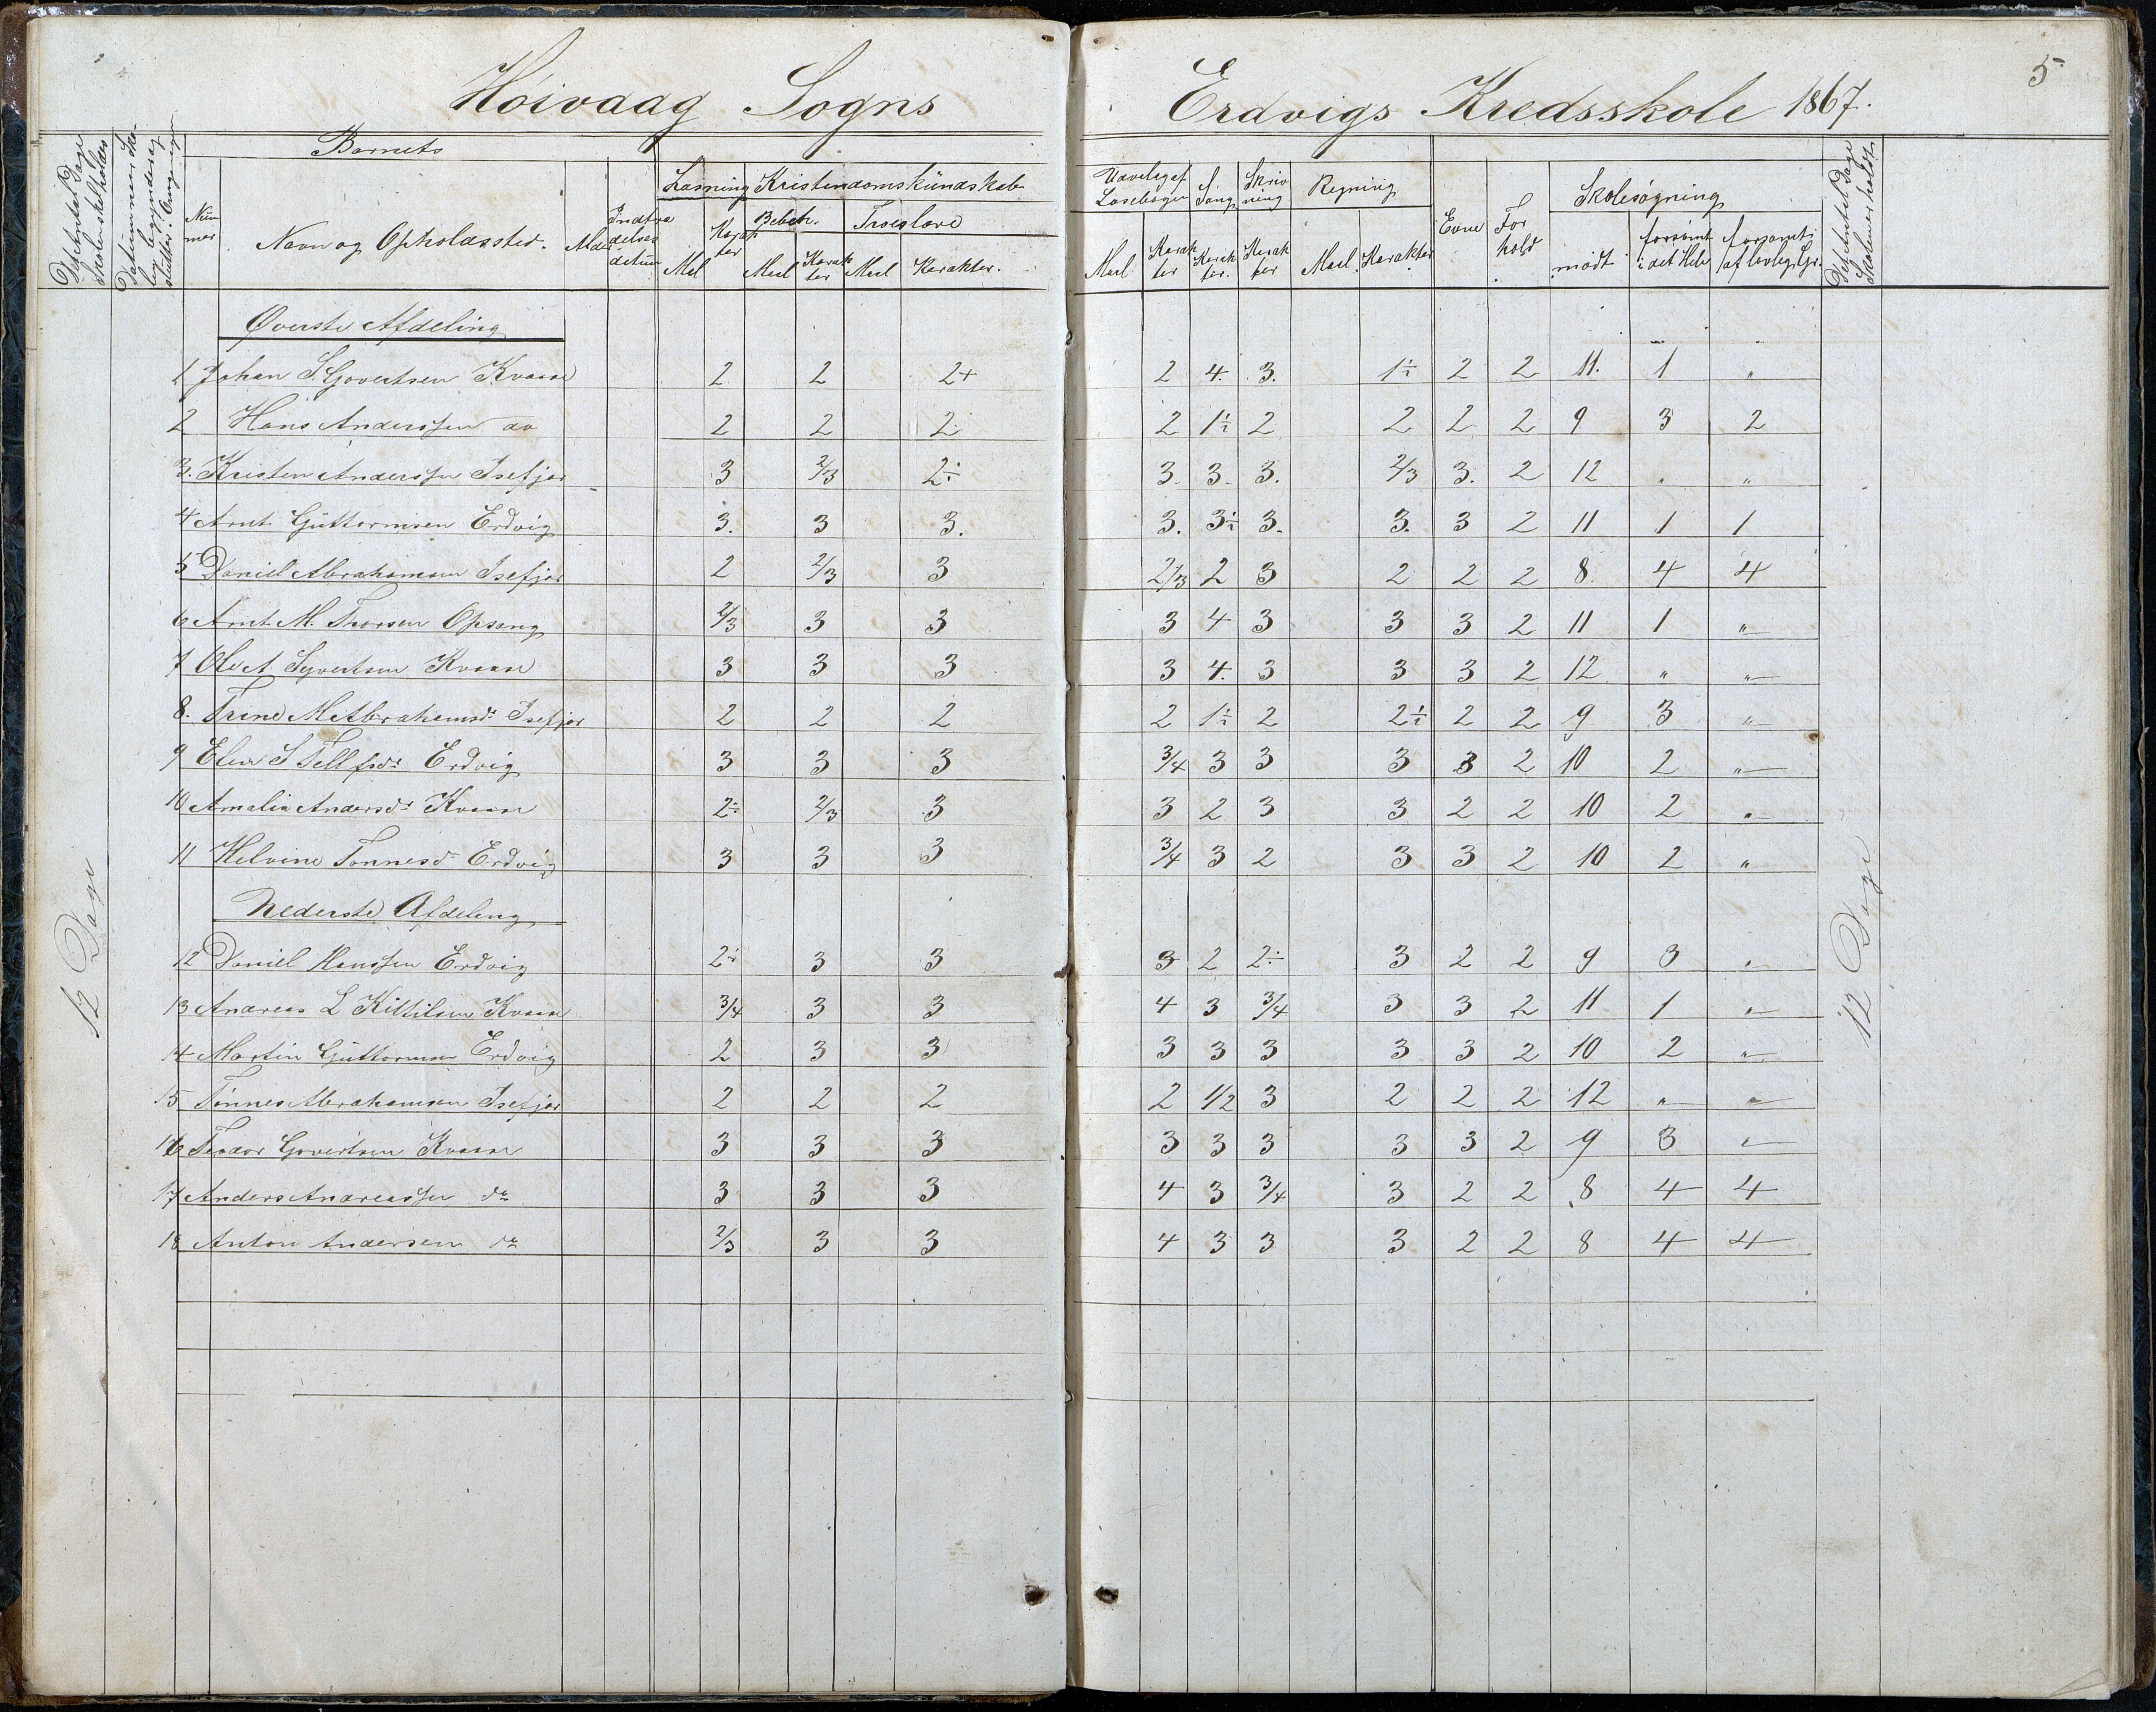 Høivaag Sogns Erdvigs Kredsskole 1867. 5
Det Antal Dage Skolen skal holdes
Datum naar Sko-
len begynder og
slutter
Num
mer
Barnets
Navn og Opholdssted.
Alder
Indtræ
delses
datum
Læsning
Maal
Karak
ter
Kristendomskundskab
Bibelh.
Maal
Karak
ter
Troeslære
Maal
Karakter.
Udvalg af
Læsebogen
Maal
Karak
ter
Sang
Karak
ter.
Skriv
ning
Karak
ter
Regning
Maal
Karakter
Evne
For
hold
Skolesøgning
mødt
forsømt
i det Hele
forsømt
af lovlig Gr.
Det Antal Dage
Skolen er holdt
Øverste Afdeling
1 Johan S. Govertsen Kvaase 2 2 2+ 2 4. 3. 1÷ 2 2 11. 1 "
2 Hans Anderssen do 2 2 2 2 1÷ 2 2 2 2 9 3 2
3. Kristen Anderssen Isefjær 3 2/3 2÷ 3. 3. 3. 2/3 3. 2 12 " "
4 Arnt Guttormsen Erdvig 3. 3 3. 3. 3÷ 3. 3. 3 2 11 1 1
5 Daniel Abrahamsen Isefjær 2 2/3 3 2/3 2 3 2 2 2 8. 4 4
6 Arnt M. Thorsen Opsang 2/3 3 3 3 4 3 3 3 2 11 1 "
7 Ole A Syvertsen Kvaase 3 3 3 3 4. 3 3 3 2 12 " "
8. Trine M Abrahamsdr Isefjær 2 2 2 2 1÷ 2 2÷ 2 2 9 3 "
9 Elen S Tellfsdr Erdvig 3 3 3 3/4 3 3 3 3 2 10 2 "
10 Amalia Andersdr Kvaase 2÷ 2/3 3 3 2 3 3 2 2 10 2 "
11 Helvine Tønnesd Erdvig 3 3 3 3/4 3 2 3 3 2 10 2 "
Nederste Afdeling
12 Daniel Hanssen Erdvig 2÷ 3 3 3 2 2÷ 3 2 2 9 3 "
13 Andreas L Kittilsen Kvaase 3/4 3 3 4 3 3/4 3 3 2 11 1 "
14 Martin Guttormsen Erdvig 2 3 3 3 3 3 3 3 2 10 2 "
15 Tønnes Abrahamsen Isefjær 2 2 2 2 1/2 3 2 2 2 12 " "
16 Teodor Govertsen Kvaase 3 3 3 3 3 3 3 3 2 9 3 "
17 Anders Andreassen do 3 3 3 4 3 3/4 3 2 2 8 4 4
18 Anton Andersen do 2/3 3 3 4 3 3 3 2 2 8 4 4
12 Dage
12 Dage